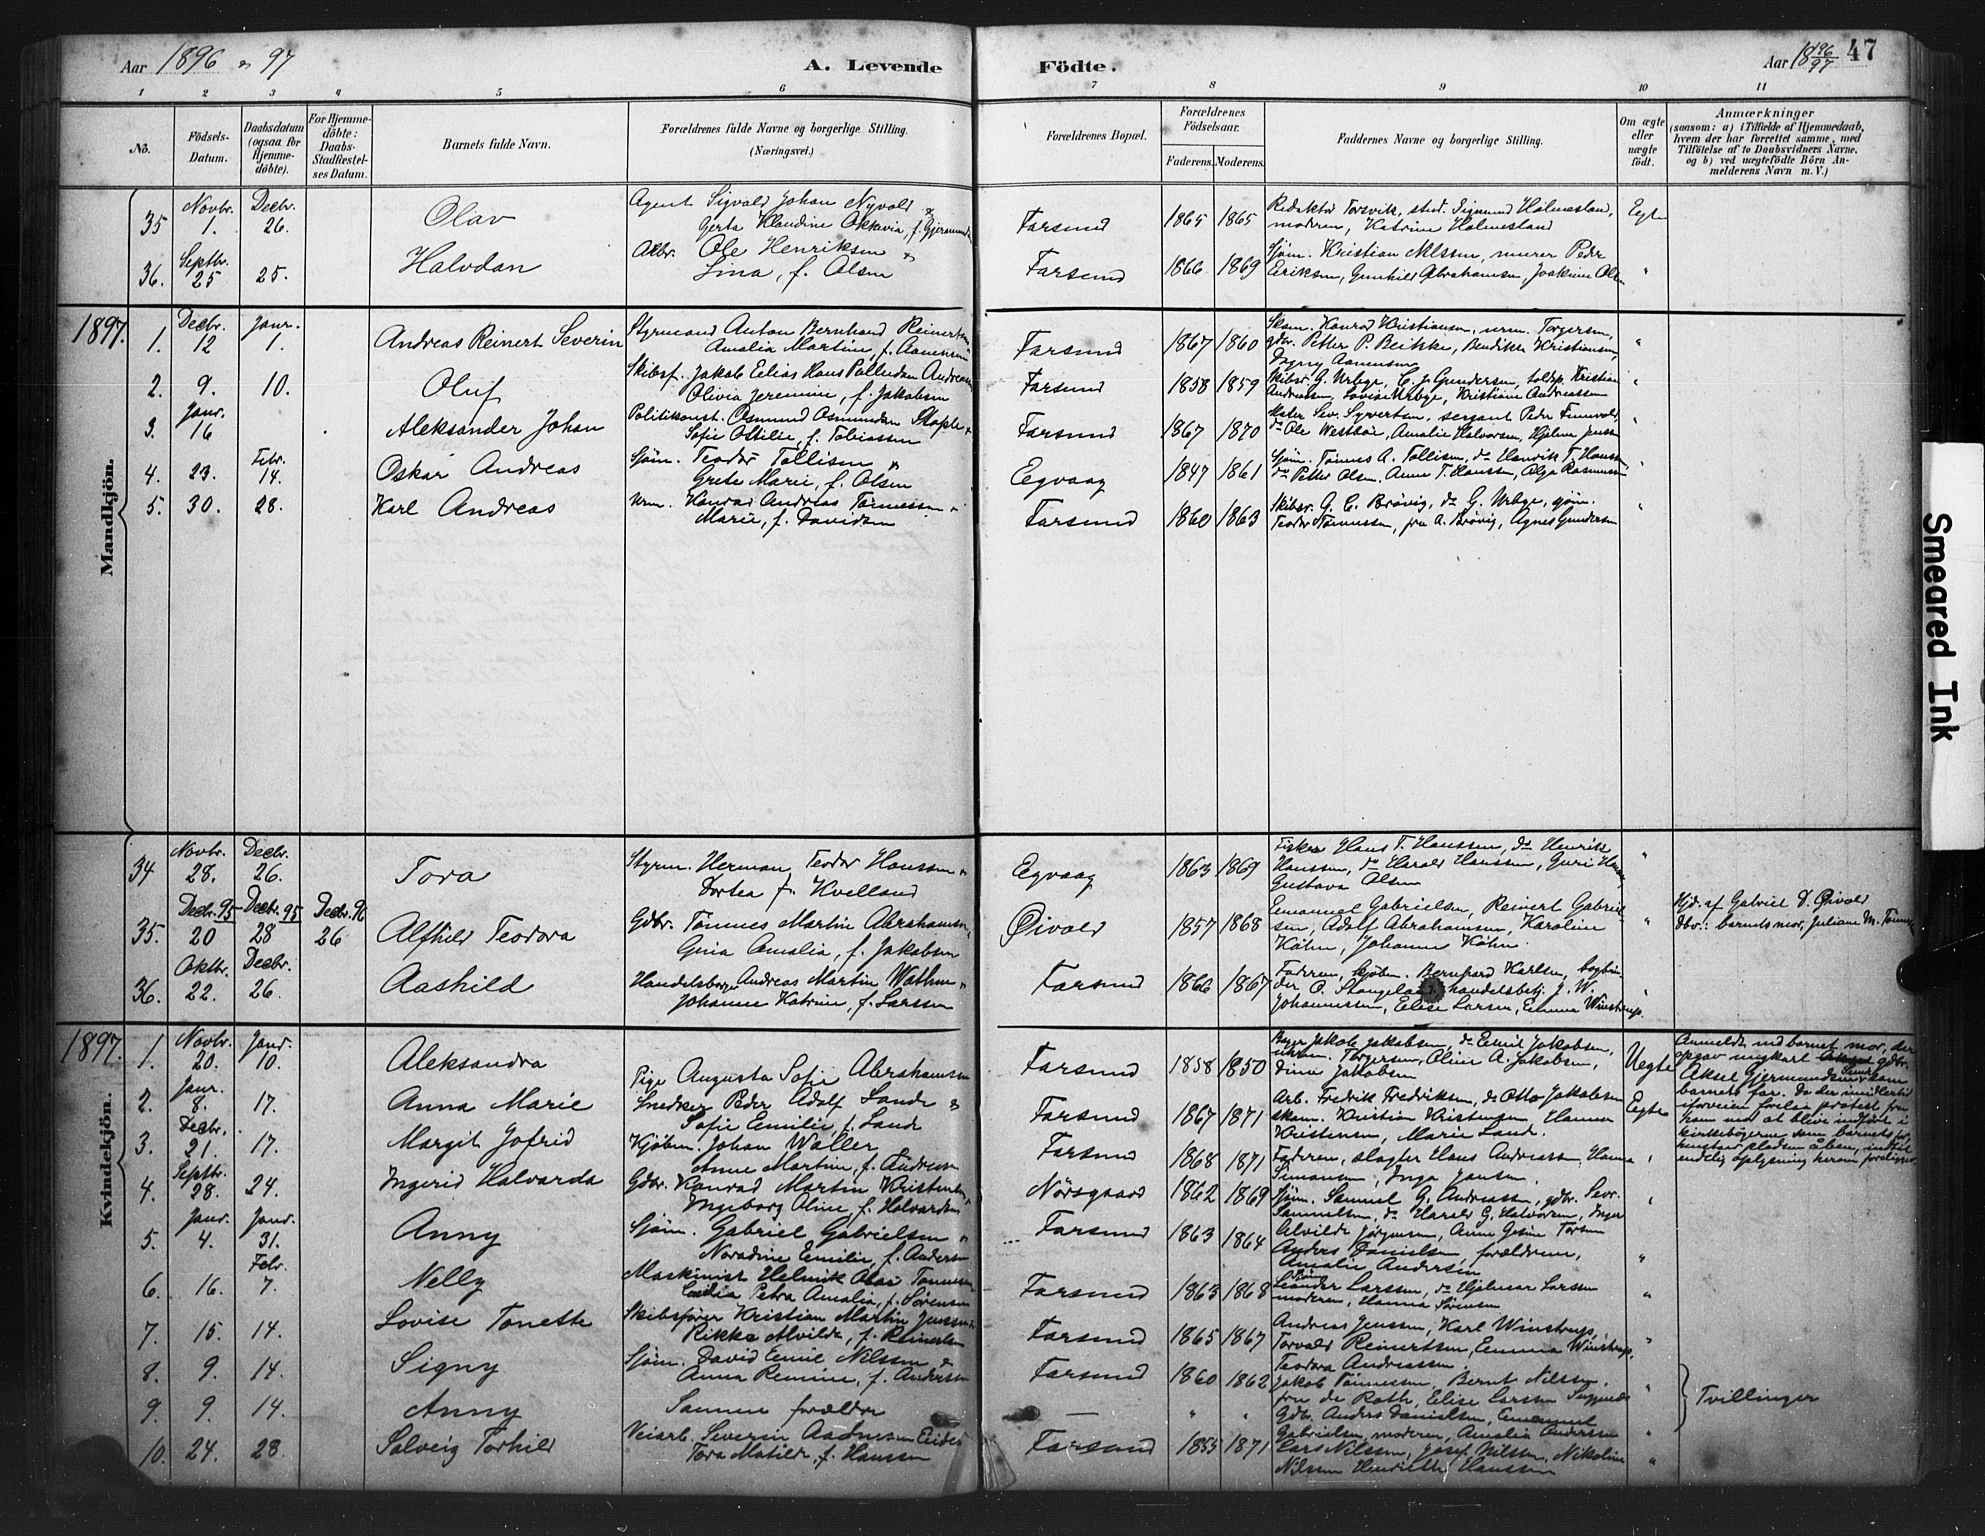 Aar 1896 & 97
A. Levende
Födte.
Aar 1896/97
47
1 2 3 4 5 6 7 8 9 10 11
No.
Födsels-Datum.
Daabsdatum (ogsaa for Hjemme-döbte).
For Hjemme-döbte: Daabs-Stadfæstel-ses Datum.
Barnets fulde Navn.
Forældrenes fulde Navne og borgerlige Stilling. (Næringsvei.)
Forældrenes Bopæl.
Forældrenes Födselsaar.
Faderens. Moderens.
Faddernes Navne og borgerlige Stilling.
Om ægte eller uægte födt.
Anmærkninger
(saasom: a) i Tilfælde af Hjemmedaab, hvem der har forrettet samme, med Tilföielse af to Daabsvidners Navne, og b) ved uægtefödte Börn An-melderens Navn m. V.)
Mandkjön.
35 Novbr. 1. Decbr. 26. Olav Agent Sigvald Johan Nyvold & Gerta Klaudine Oktavia, f. Farsund 1865 1865 Redaktør Torsvik, stud. Sigmund Holmesland, moderen, Katrine Holmesland Egte
36. Septbr. 25 25. Halvdan Ole Henriksen & Lina, f. Olsen Farsund 1866 1869 Sjøm. Kristian Nilssen, murer Peder Eriksen, Gunhild Abrahamsen, Joakime Olsen "
1897.
1. Decbr. 12 Janr. 1. Andreas Reinert Severin Styrmand Anton Bernhard Reinertsen Amalia Martine, f. Aamensen Farsund 1867 1860 Skom. Konrad Kristiansen, urm. Torgersen, gdbr. Petter P. Beikke, Bendikte Kristiansen, "
2. 9. 10. Oluf Skibsf. Jakob Elias Hans Palludan Andreasen Olivia Jeremine, f. Jakobsen Farsund 1858 1859 Skibsr. G. Urbye, C. J. Gundersen, toldop. Kristian Andreassen, Lovise Urbye, Kristiane Andreassen "
3. Janr. 16 Aleksander Johan Politikonst. Osmund Osmundsen Stople & Sofie Ottilie, f. Tobiassen Farsund 1867 1870 Sev. Syvertsen, sergant Peder do Ole Westbøe, Amalie Halvorsen, "
4. 23. Febr. 14. Oskar Andreas Sjøm. Teodor Tollisen & Grete Marie, f. Olsen Egvaag 1847 1861 Sjøm. Tønnes A. Tollisen, do Henrik T. Hanssen, do Petter Olsen, Anne T. Hanssen, Olga Rasmussen "
5. 30. 28. Karl Andreas Urm. Konrad Andreas Tønnessen & Marie, f. Davidsen Farsund 1860 1863 Skibsr. G. C. Brøvig, do G. Urbye, sjøm. Teodor Tønnessen, fru A. Brøvig, Agnes Gundersen "
Kvindekjön.
34 Novbr. 28. Decbr. 26. Tora Styrm. Herman Teodor Hanssen & Dortea f. Kvelland Egvaag 1863 1869 Fisker Hans T. Hanssen, do Henrik Hanssen, do Harald Hanssen, Guri Gustava Olsen "
35. Decbr. 95 20 Decbr. 95 28 Decbr. 96 26 Alfhild Teodora Gdbr. Tønnes Martin Abrahamsen, Gina Amalia, f. Jakobsen Øivold 1857 1868 Emanuel Gabrielsen, Reinert Gabriel-sen, Adolf Abrahamsen, Karoline Køhn, Johanne Køhn " Hjd. af Gabriel D. Øivold Dbv.: barnets mor, Juliane M. Tønnes
36. Oktbr. 22. Decbr. 26. Aashild Handelsborger Andreas Martin Wathne & Johanne Katrine, f. Larssen Farsund 1866 1867 Faderen, kjøbm. Bernhard Karlsen, bogbin-der O. Stangeland, handelsbetj. J. W. Johannessen, Elise Larsen, Emma Winstrup. "
1897.
1. Novbr. 20. Janr. 10. Aleksandra Pige Augusta Sofie Abrahamsen Farsund 1858 1850 Jakob Jakobsen, do Emil Jakobsen, Torgersen, Oline A. Jakobsen, Dina Jakobsen Uegte Anmeldt ved barnets mor, der opgav ungkarl gdbr. Aksel Gjermundsen som barnets far. Da der imidlertid iforveien forelaa protest fra ham ved at blive indført i kirkebøgerne som barnets far, henstaar pladsen aaben, indtil endelig oplysning herom foreligger.
2. Janr. 8. 17. Anna Marie Snedker Peder Adolf Lande & Sofie Emilie, f. Lande Farsund 1867 1871 Arb. Fredrik Fredriksen, do Otto Jakobsen skom. Kristian Kristensen, Hanna Kristensen, Marie Lande. Egte
3. Decbr. 21. 17. Margit Jofrid Kjøbm. Johan Waller, Anne Martine, f. Andersen Farsund 1868 1871 Faderen, slagter Hans Andreassen, Hanna Simonsen, Inga Jansen. "
4. Septbr. 28. 24. Ingerid Halvarda Gdbr. Konrad Martin Kristensen Ingeborg Oline, f. Halvardsen Nørsgaard 1862 1869 Sjøm. Samuel G. Andreassen, gdbr. Sevr. Samuelsen, do Harald G. Halvorsen, Inger "
5. Janr. 4. Janr. 31. Anny Sjøm. Gabriel Gabrielsen & Noradine Emilie, f. Andersen Farsund 1863 1864 Alvilde Jørgensen, Anne Gesine Torsen Anders Danielsen, forældrene, Amalie Andersen "
6. 16. Febr. 7. Nelly Maskinist Helmik Olai Tønnessen Petra Amalia, f. Sørensen Farsund 1863 1868 Leander Larssen, do Hjalmar Larssen moderen, Hanna Sørensen "
7. 15. 14. Lovise Tonette Skibsfører Kristian Martin Jenssen & Rikka Alvilde, f. Reinertsen Farsund 1865 1867 Andreas Jenssen, Karl Winstrup, Torvald Reinertsen, Emma Winstrup, Teodora Andreassen. "
8. 9. 14. Signy Sjøm. David Emil Nilssen & Anna Remine, f. Andersen Farsund 1860 1862 Jakob Tønnessen, Bernt Nilssen, fru de Roth, Elise Larssen "
9. 9. 14. Anny Samme forældre — " " Gdbr. Anders Danielsen, Emanuel Gabrielsen, moderen, Amalia Andersen " Tvillinger
10. 24. 28. Solveig Torhild Veiarb. Severin Aadnesen Eide & Tora Matilde, f. Hanssen Farsund 1855 1871 Lars Nilssen, Josef Nilssen, Nikoline Nilssen Henriette Hanssen "
Smeared Ink